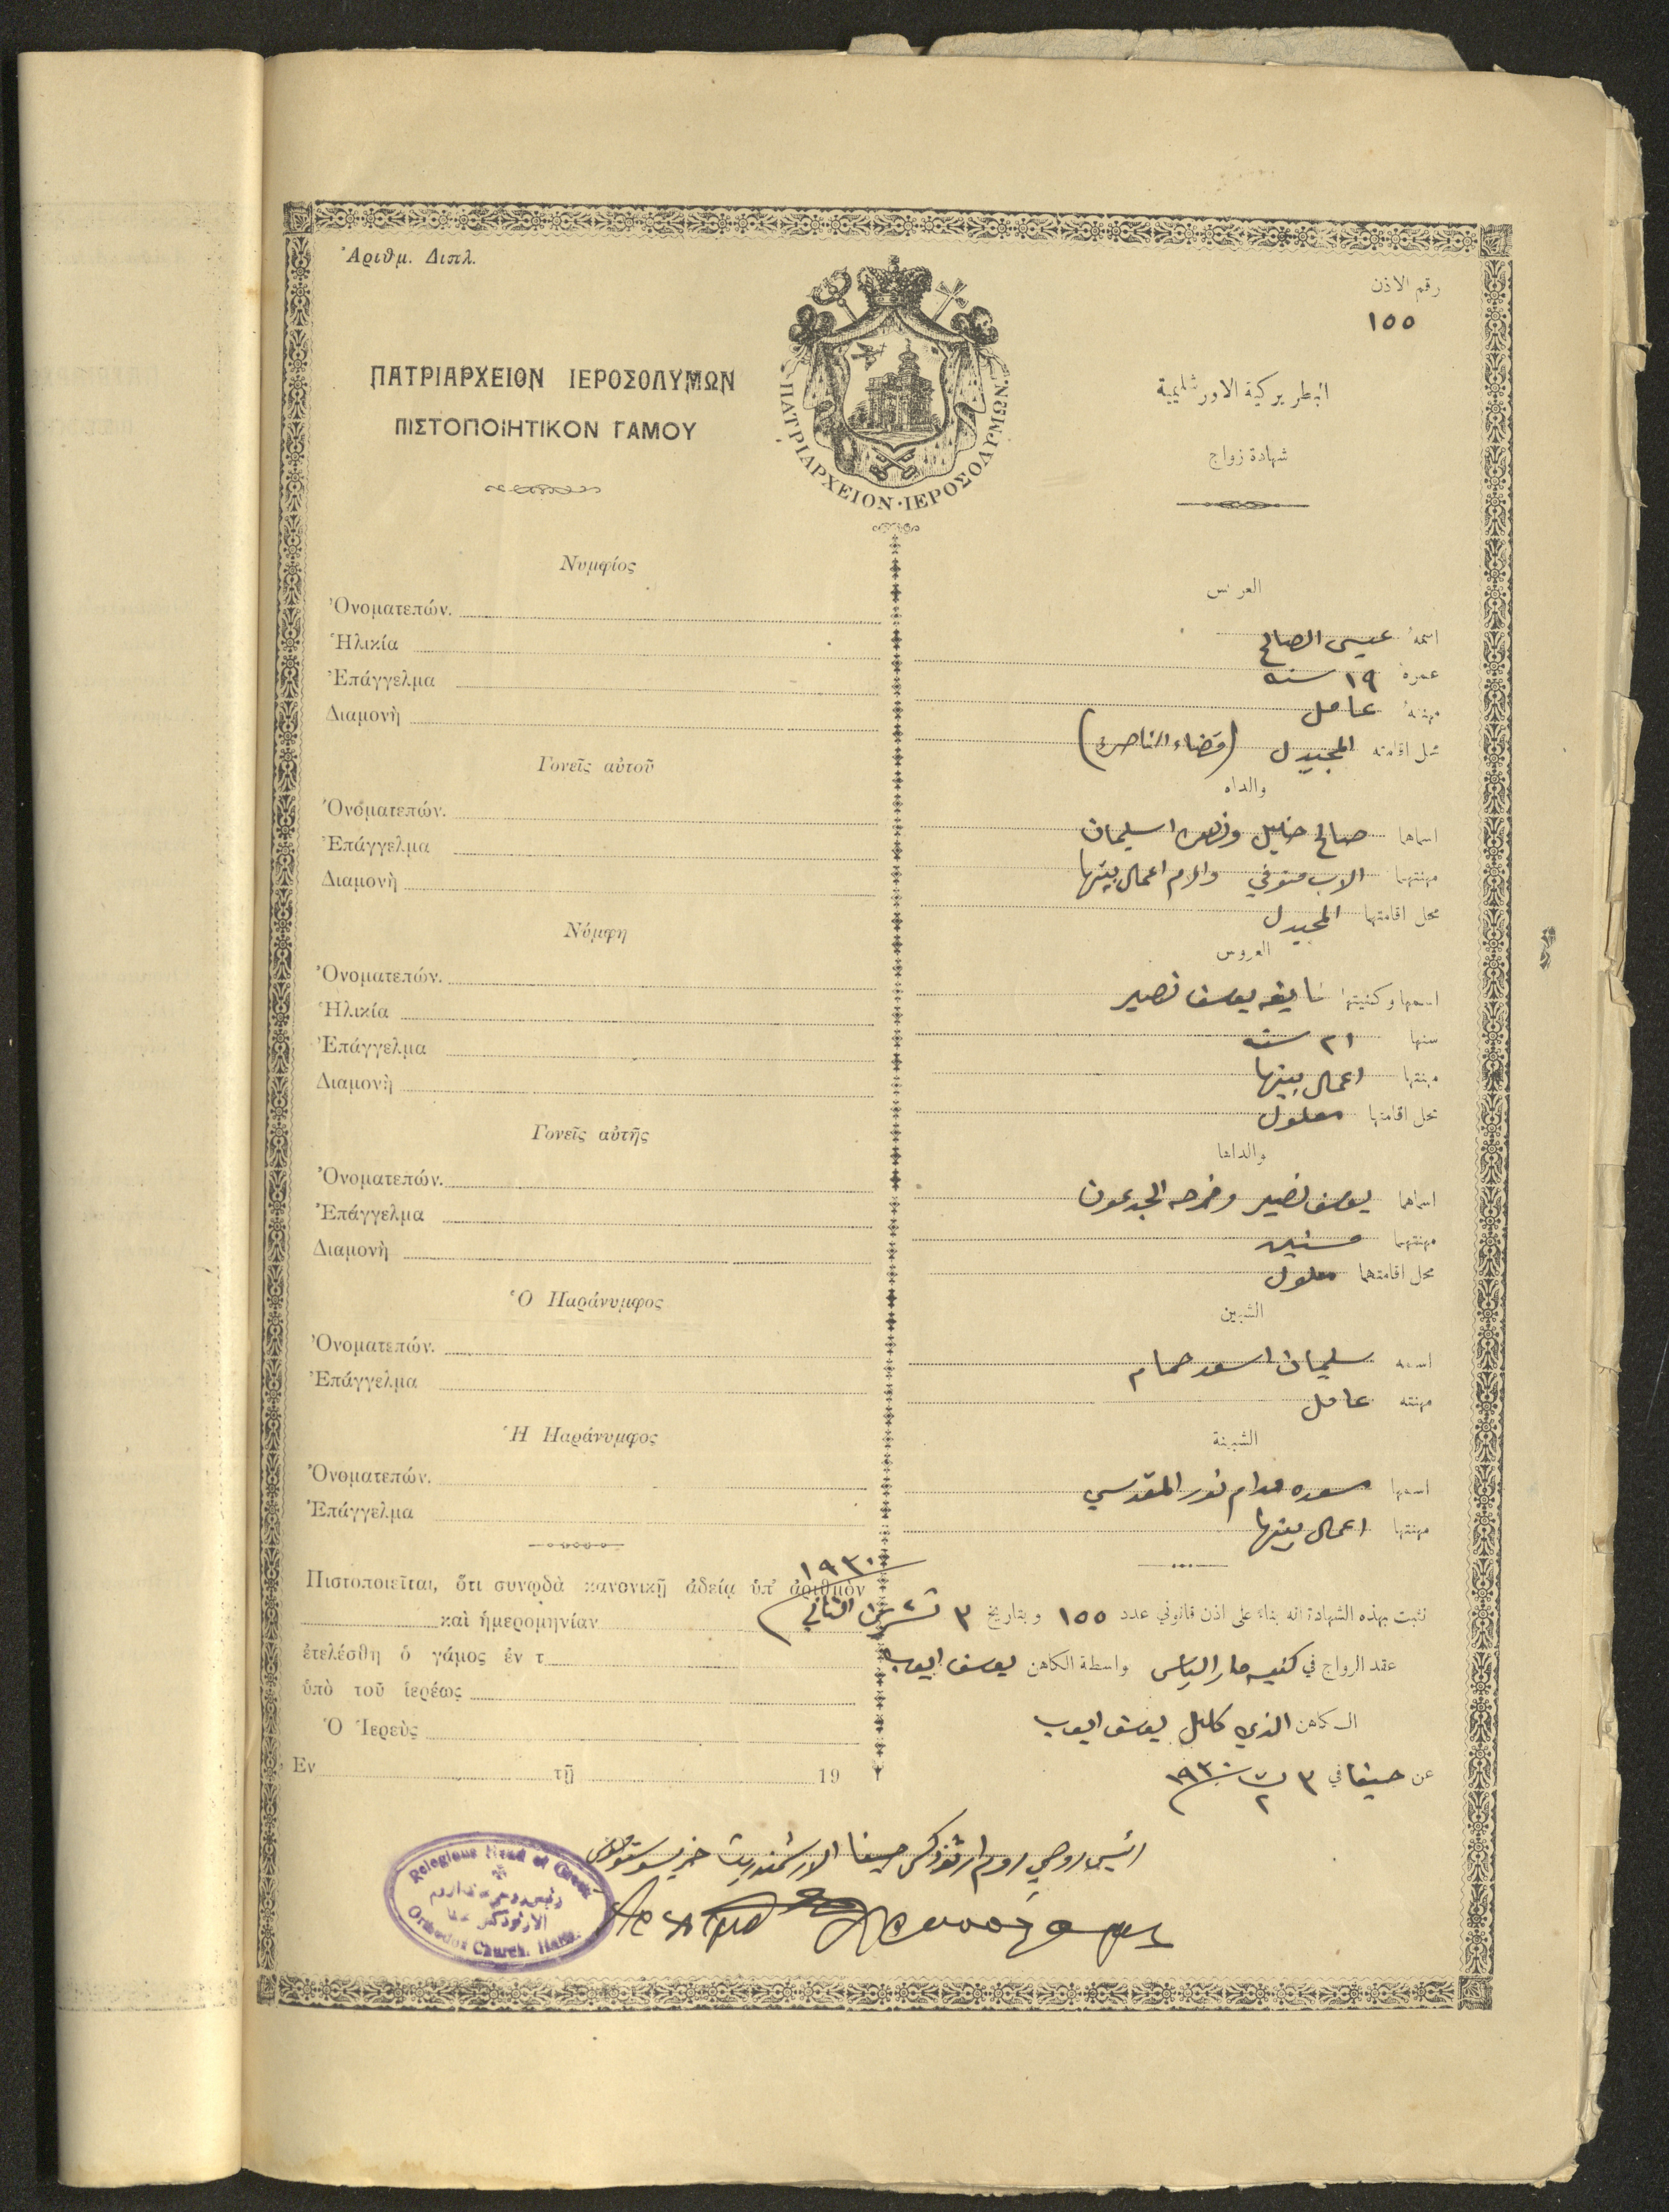 Ἀριθμ. Διπλ.
رقم الاذن
١٥٥
ΠΑΤΡΙΑΡΧΕΙΟΝ ΙΕΡΟΣΟΛΥΜΩΝ
ΠΙΣΤΟΠΟΙΗΤΙΚΟΝ ΓΑΜΟΥ
ΠΑΤΡΙΑΡΧΕΙΟΝ · ΙΕΡΟΣΟΛΥΜΩΝ
البطريركية الاورشليمية
شهادة زواج
Νυμφίος
Ὀνοματεπών.
Ἡλικία
Ἐπάγγελμα
Διαμονὴ
Γονεῖς αὐτοῦ
Ὀνοματεπών.
Ἐπάγγελμα
Διαμονὴ
Νύμφη
Ὀνοματεπών.
Ἡλικία
Ἐπάγγελμα
Διαμονὴ
Γονεῖς αὐτῆς
Ὀνοματεπών.
Ἐπάγγελμα
Διαμονὴ
Ὁ Παράνυμφος
Ὀνοματεπών.
Ἐπάγγελμα
Ἡ Παράνυμφος
Ὀνοματεπών.
Ἐπάγγελμα
Πιστοποιεῖται, ὅτι συνῳδὰ κανονικῇ ἀδείᾳ ὑπ' ἀριθμὸν
καὶ ἡμερομηνίαν
ἐτελέσθη ὁ γάμος ἐν τ
ὑπὸ τοῦ ἱερέως
Ὁ Ἱερεὺς
Εν τῇ 19
العريس
اسمهُ عيسى الصالح
عمرهُ ١٩ سنه
مهنتهُ عامل
محل اقامته المجيدل (قضاء الناصره)
والداه
اسماهما صالح خليل وزهره اسليمان
مهنتهما الاب متوفي والام اعمال بيتها
محل اقامتهما المجيدل
العروس
اسمها وكنيتها نايفه يوسف نصير
سنها ٢١ سنه
مهنتها اعمال بيتها
محل اقامتها معلول
والداها
اسماهما يوسف نصير وفرحه الجدعون
مهنتهما
محل اقامتهما معلول
الشبين
اسمه سليمان اسعد حمام
مهنته عامل
الشبينة
اسمها سعده مدام نور المقدسي
مهنتها اعمال بيتها
نثبت بهذه الشهادة انه بناء على اذن قانوني عدد ١٥٥ وبتاريخ ٣ تشرين الثاني ١٩٣٠
عقد الزواج في كنيسة مار الياس واسطة الكاهن يوسف ايوب
الكاهن الذي كلل يوسف ايوب
عن حيفا في ٣ ت٢ ١٩٣٠
رئيس روحي روم ارثوذكس حيفا الارشمندريت خريسوستوموس
Relegious Head of Greek
رئيس روحي طائفة الروم
الارثوذكس حيفا
Orthodox Church. Haifa.